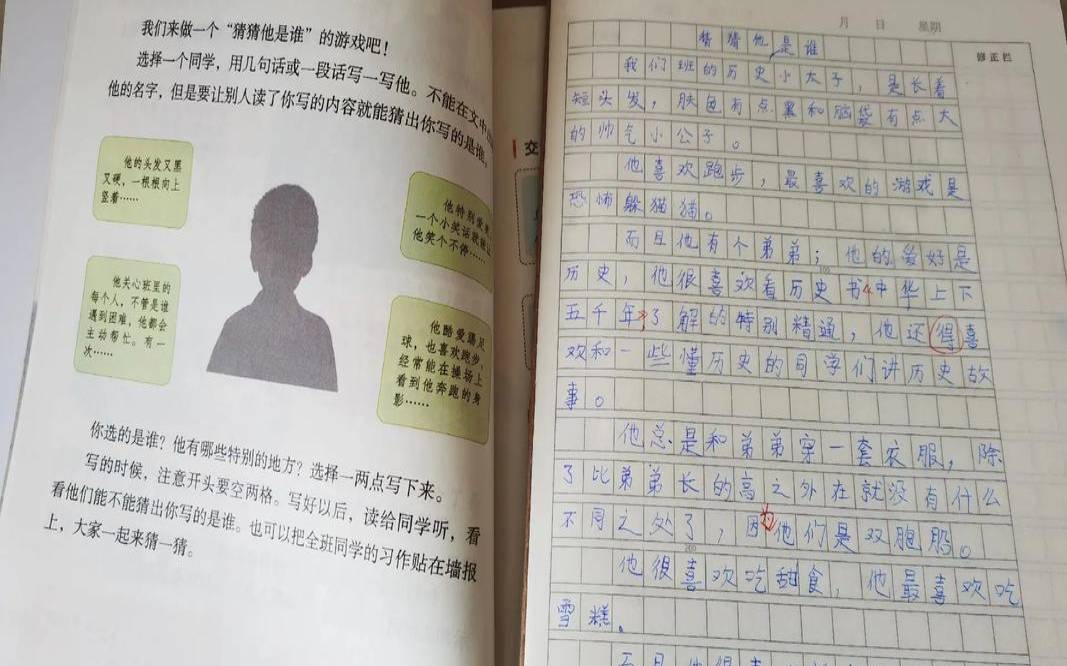 我们来做一个“猜猜他是谁”的游戏吧！
选择一个同学，用几句话或一段话写一写他。不能在文中
他的名字，但是要让别人读了你写的内容就能猜出你写的是谁。
他的头发又黑
又硬，一根根向上
竖着……
他特别爱
一个小笑话就能
他笑个不停……
他关心班里的
每个人，不管是谁
遇到困难，他都会
主动帮忙。有一
次……
他酷爱踢足
球，也喜欢跑步，
经常能在操场上
看到他奔跑的身
影……
你选的是谁？他有哪些特别的地方？选择一两点写下来。
写的时候，注意开头要空两格。写好以后，读给同学听，看
看他们能不能猜出你写的是谁。也可以把全班同学的习作贴在墙报
上，大家一起来猜一猜。
交
月 日 星期
修正栏
猜猜他是谁
我们班的历史小太子，是长着
短头发，肤色有点黑和脑袋有点大
的帅气小公子。
他喜欢跑步，最喜欢的游戏是
恐怖躲猫猫。
而且他有个弟弟；他的爱好是
100
历史，他很喜欢看历史书中华上下
五千年了解的特别精通，他还得喜
欢和一些懂历史的同学们讲历史故
事。
他总是和弟弟穿一套衣服，除
了比弟弟长的高之外在就没有什么
不同之处了，因为他们是双胞胎。
200
他很喜欢吃甜食，他最喜欢吃
雪糕。
而且他很喜